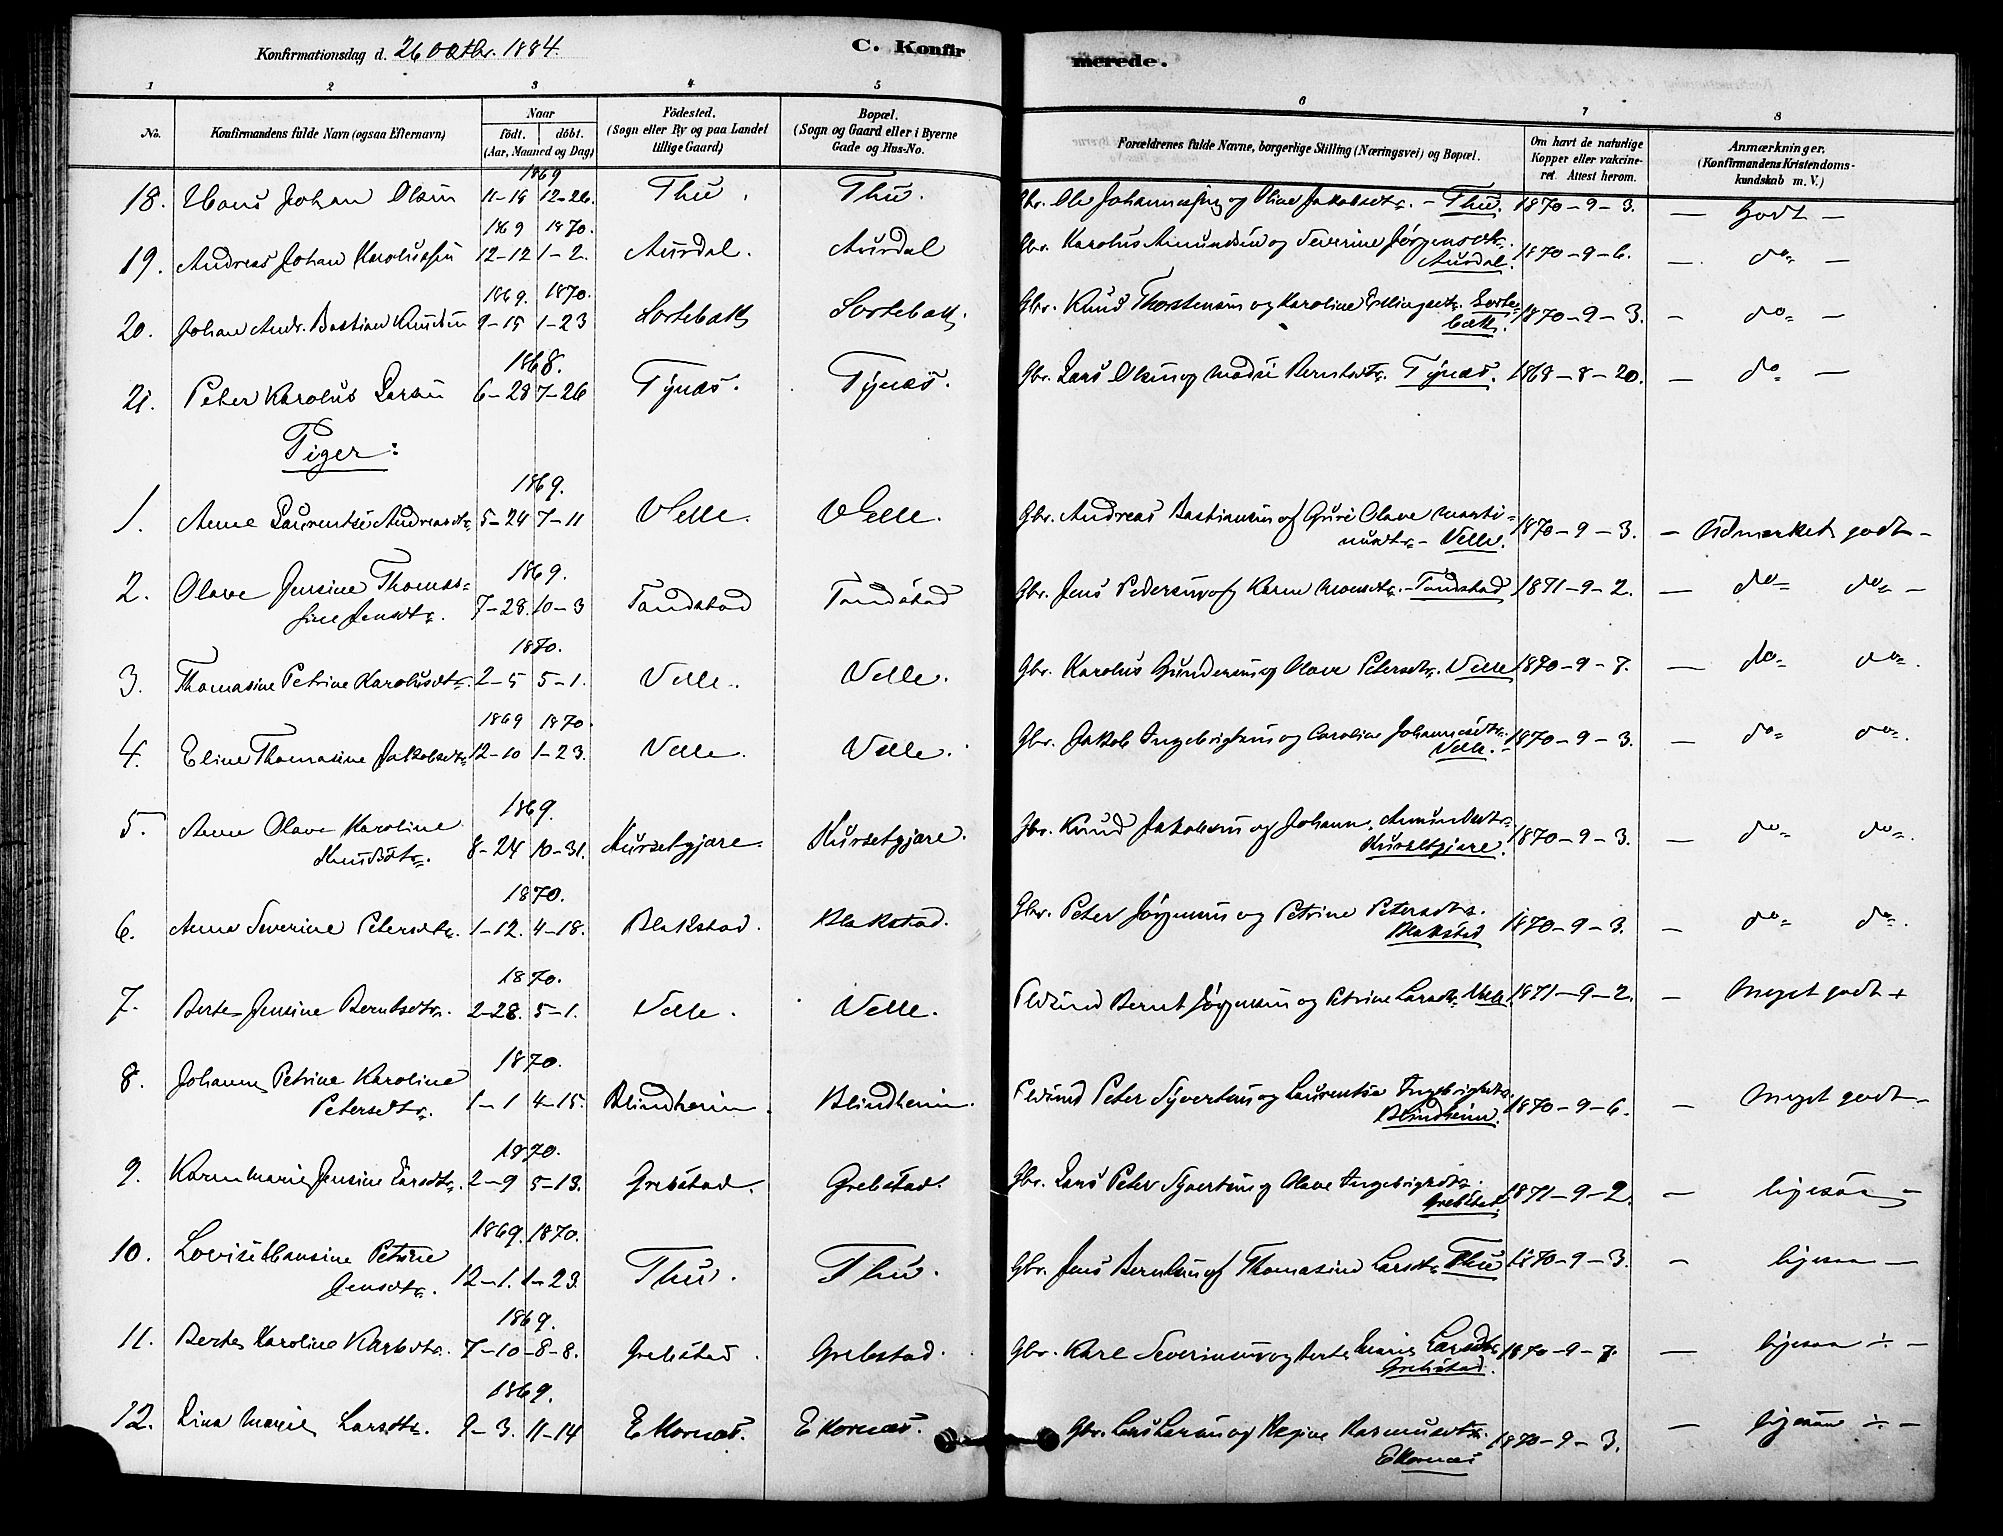 Konfirmationsdag d. 26 Oktbr. 1884.
C. Konfirmerede.
1 2 3 4 5 6 7 8
No. Konfirmandens fulde Navn (ogsaa Efternavn) Naar födt. döbt. (Aar, Maaned og Dag) Födested. (Sogn eller By og paa Landet tillige Gaard) Bopæl. (Sogn og Gaard eller i Byerne Gade og Hus-No. Forældrenes fulde Navne, borgerlige Stilling (Næringsvei) og Bopæl. Om havt de naturlige Kopper eller vakcineret. Attest herom. Anmærkninger, (Konfirmandens Kristendomskundskab m. V.)
1869
18. Hans Johan Olsen 11-19 12-26. Thu. Thu. Gbr. Ole Johannessen og Oline Jakobsdtr. - Thu. 1870-9-3. - Godt -
1869 1870.
19. Andreas Johan Karolussen 12-12 1-2. Aursdal. Aursdal Gbr. Karolus Amundsen og Severine Jørgensdtr.
Aursdal. 1870-9-6. - do -
1869. 1870.
20. Johan Andr. Bastian Knudsen 9-15 1-23 Sortebæk Sortebæk. Gbr. Knud Thorstensen og Karoline Erlingsdtr. Sorte-
bæk. 1870-9-3. - do -
1868.
21. Peter Karolus Larsen 6-28 7-26 Tynæs. Tynæs. Gbr. Lars Olsen og Berntsdtr. Tynæs. 1868-8-20. - do -
Piger:
1869.
1. Anne Laurentse Andreasdtr. 5-24 7-11 Velle. Velle. Gbr. Andreas Bastiansen og Guri Olave Marti-
nusdtr. - Velle. 1870-9-3. - Udmerket godt -
1869.
2. Olave Jensine Thomas-
sine Jensdtr. 7-28. 10-3 Tandstad Tandstad Gbr. Jens Pedersen og Karen Monsdtr. - Tandstad 1871-9-2. - do do -
1870.
3. Thomasine Petrine Karolusdtr. 2-5 5-1. Velle. Velle. Gbr. Karolus Gundersen og Olave Petersdtr. Velle 1870-9-7. - do do.
1869 1870.
4. Eline Thomasine Jakobsdtr. 12-10 1-23. Velle. Velle. Gbr. Jakob Ingebrigtsen og Caroline Johannesdtr.
Velle. - 1870-9-3. - do do.
1869.
5. Anne Olave Karoline
Knudsdtr. 8-24 10-31. Kursetgjære. Kursetgjære. Gbr. Knud Jakobsen og Johann. Amundsdtr.
Kursetgjære. 1870-9-3. - do do.
1870.
6. Anne Severine Petersdtr. 1-12. 4-18. Blakstad. Blakstad. Gbr. Peter Jørgensen og Petrine Petersdtr.
Blakstad 1870-9-3. - do do.
1870.
7. Berte Jensine Berntsdtr. 2-28. 5-1. Velle. Velle. Bernt Jørgensen og Petrine Larsdtr. Velle 1871-9-2. - Meget godt +
1870.
8. Johanne Petrine Karoline
Petersdtr. 1-1 4-15. Blindheim. Blindheim. Peter Syvertsen og Laurentse Ingebrigtsdtr.
Blindheim. 1870-9-6. - Meget godt -
1870.
9. Karen Marie Jensine Larsdtr. 2-9 5-13. Grebstad. Grebstad. Gbr. Lars Peter Syvertsen og Olave Ingebrigtsdtr.
Grebstad. 1871-9-2. - ligesaa -
1869. 1870.
10. Lovise Hansine Petrine
Jensdtr. 12-1. 1-23. Thu. Thu. Gbr. Jens Berntsen og Thomasine Larsdtr. Thu 1870-9-3. - ligesaa -
1869.
11. Berte Karoline Karlsdtr. 7-10-8-8. Grebstad. Grebstad. Gbr. Karl Severinsen og Berte Marie Larsdtr.
Grebstad. 1870-9-7. - ligesaa ÷ -
1869.
12. Lina Marie Larsdtr. 9-3. 11-14 Ekornæs. Ekornæs. Gbr. Lars Larsen og Regine Rasmusdtr.
Ekornæs 1870-9-3. - ligesaa ÷ -